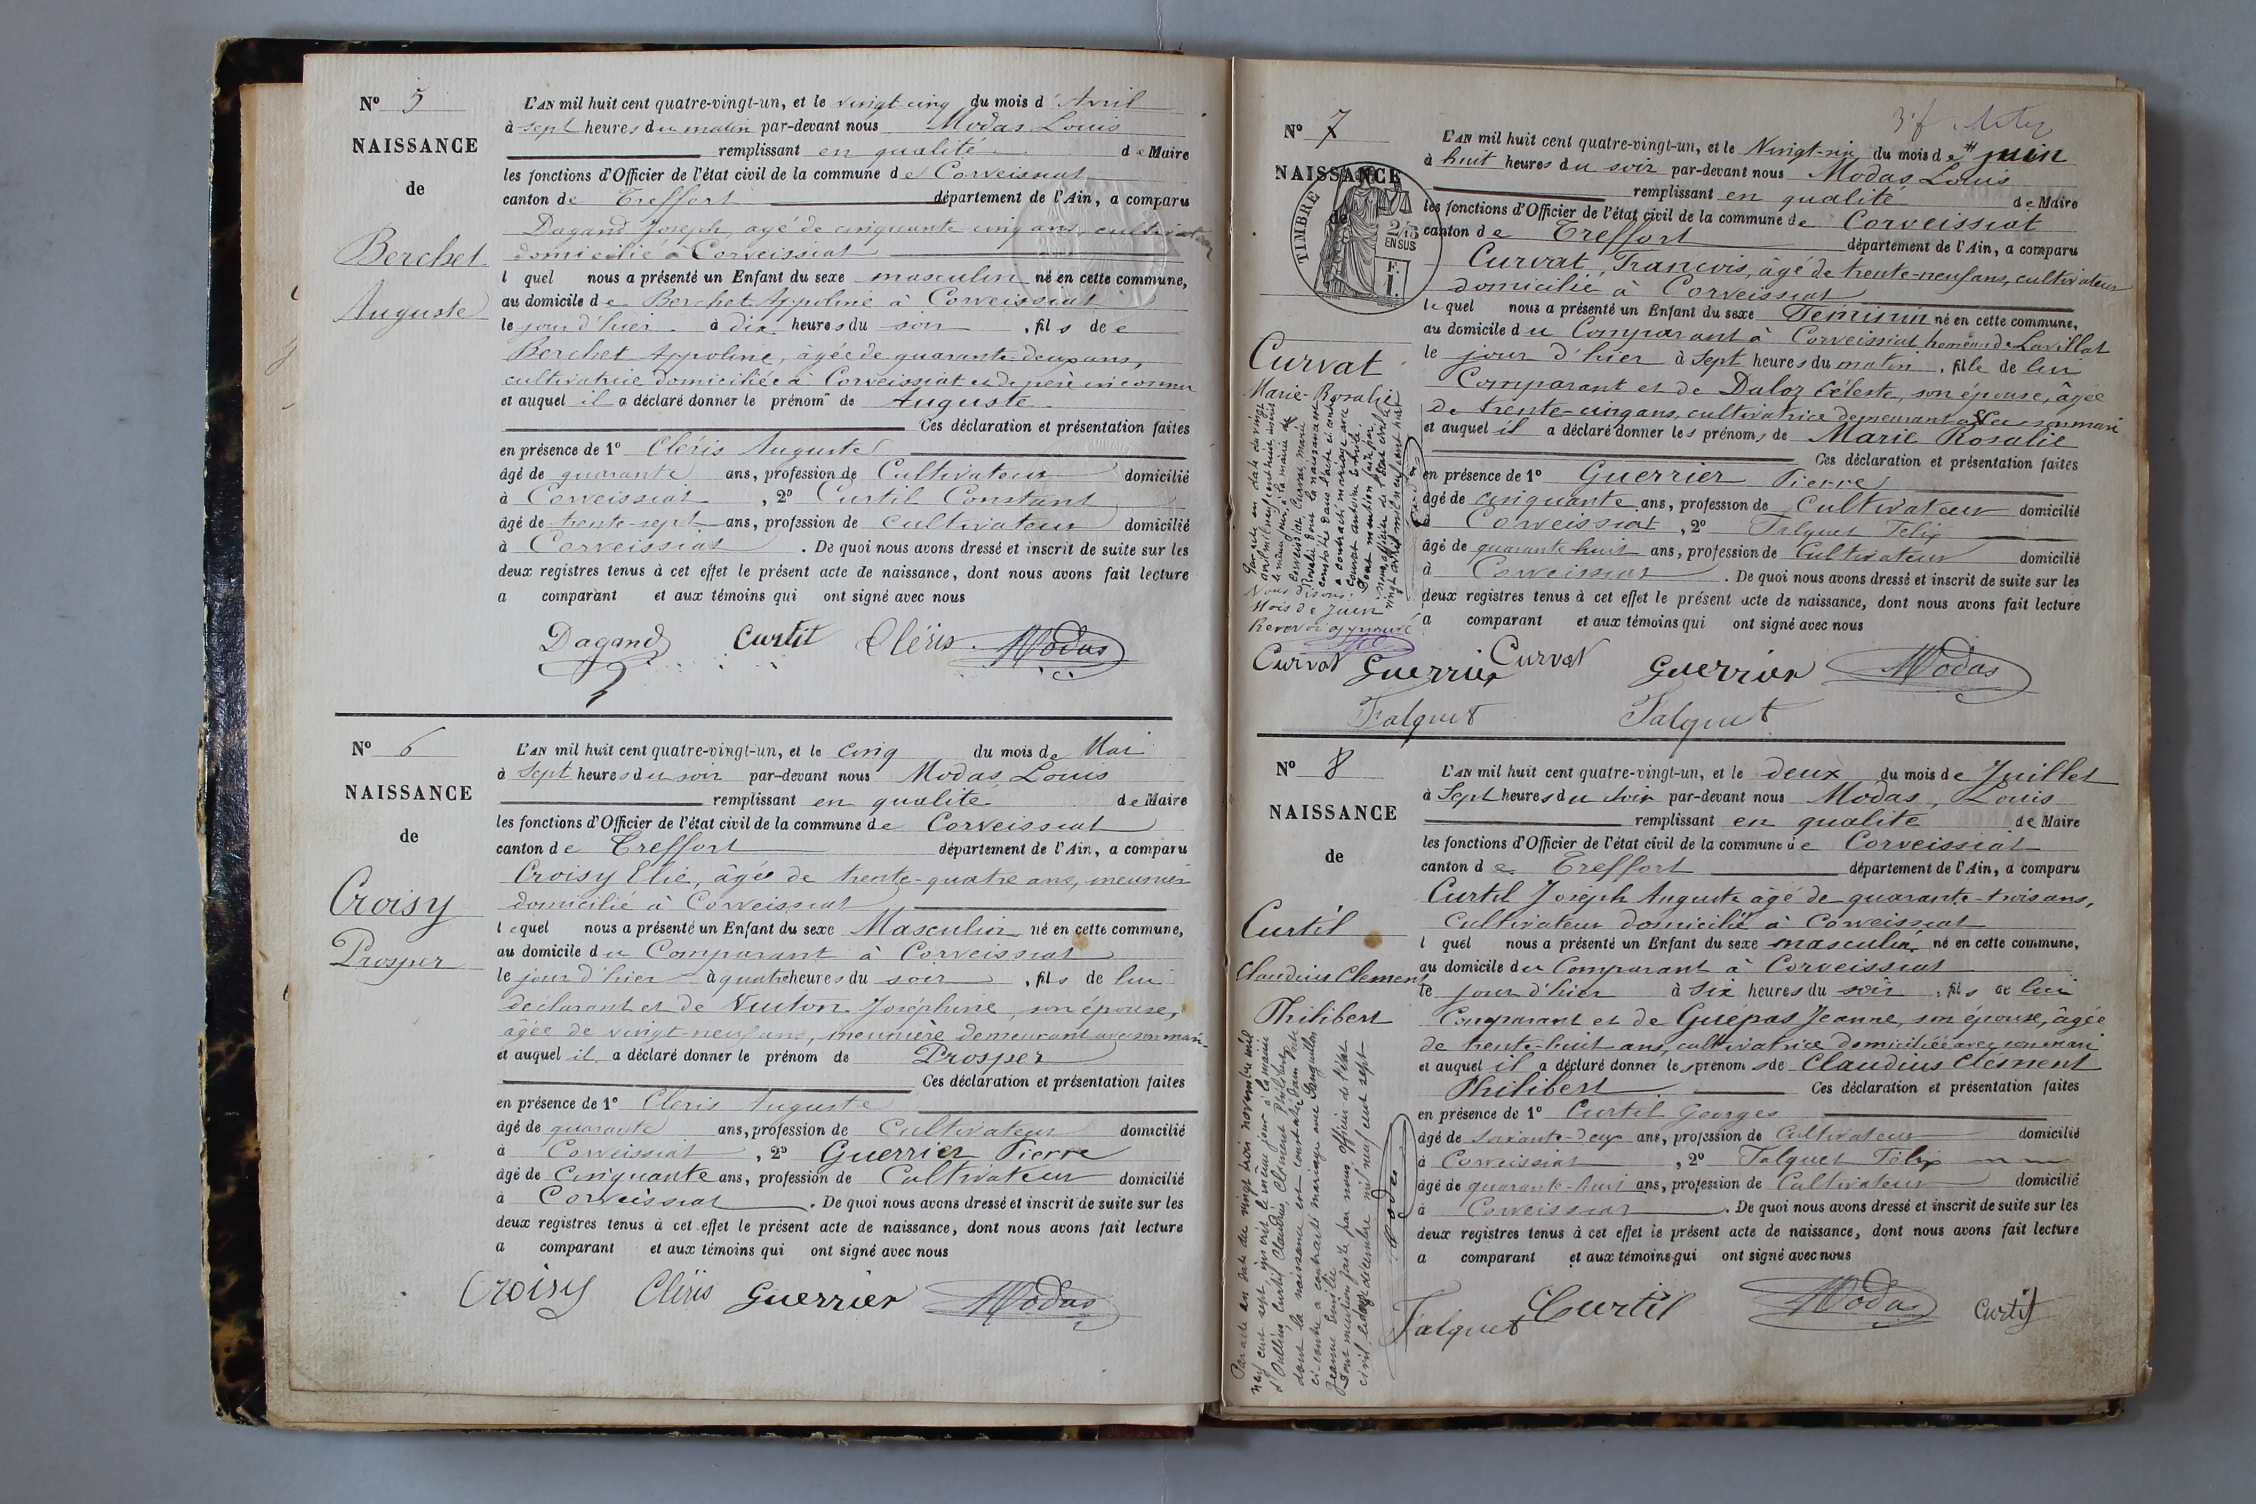 N° 5
NAISSANCE
de
Berchet
Auguste
L'AN mil huit cent quatre-vingt-un, et le vingt-cinq du mois d'Avril
à sept heures du matin par-devant nous Modas Louis
remplissant en qualité de Maire
les fonctions d'Officier de l'état civil de la commune de Corveissiat
canton de Treffort département de l'Ain, a comparu
Dagand Joseph, agé de cinquante cinq ans, cultivateur
domicilié à Corveissiat
l quel nous a présenté un Enfant du sexe masculin né en cette commune,
au domicile de Berchet Appoline à Corveissiat
le jour d'hier à dix heures du soir, fils de
Berchet Appoline, âgée de quarante-deux ans,
cultivatrice domiciliée à Corveissiat et de père inconnu
et auquel il a déclaré donner le prénom de Auguste
Ces déclaration et présentation faites
en présence de 1° Cléris Auguste
âgé de quarante ans, profession de Cultivateur domicilié
à Corveissiat, 2° Curtil Constant
âgé de trente-sept ans, profession de cultivateur domicilié
à Corveissiat. De quoi nous avons dressé et inscrit de suite sur les
deux registres tenus à cet effet le présent acte de naissance, dont nous avons fait lecture
a comparant et aux témoins qui ont signé avec nous
Dagand Curtil Cléris Modas
N° 6
NAISSANCE
de
Croisy
Prosper
L'AN mil huit cent quatre-vingt-un, et le cinq du mois de Mai
à Sept heures du soir par-devant nous Modas Louis
remplissant en qualité de Maire
les fonctions d'Officier de l'état civil de la commune de Corveissiat
canton de Treffort département de l'Ain, a comparu
Croisy Elie, âgée de trente-quatre ans, meunier
domicilié à Corveissiat
lequel nous a présenté un Enfant du sexe Masculin né en cette commune,
au domicile du Comparant à Corveissiat
le jour d'hier à quatre heures du soir, fils de lui
déclarant et de Joséphine, son épouse,
âgée de vingt-neuf ans, meunière demeurant avec son mari
et auquel il a déclaré donner le prénom de Prosper
Ces déclaration et présentation faites
en présence de 1° Cléris Auguste
âgé de quarante ans, profession de Cultivateur domicilié
à Corveissiat, 2° Guerrier Pierre
âgé de Cinquante ans, profession de Cultivateur domicilié
à Corveissiat. De quoi nous avons dressé et inscrit de suite sur les
deux registres tenus à cet effet le présent acte de naissance, dont nous avons fait lecture
a comparant et aux témoins qui ont signé avec nous
Croisy Cléris Guerrier Modas
N° 7
NAISSANCE
de
TIMBRE
2/10 EN SUS
F. 1.
Curvat
Marie-Rosalie
Nous disons:
Mois de Juin
Renvoi approuvé
L'AN mil huit cent quatre-vingt-un, et le Vingt-six du mois de juin
à huit heures du soir par-devant nous Modas Louis
remplissant en qualité de Maire
les fonctions d'Officier de l'état civil de la commune de Corveissiat
canton de Treffort département de l'Ain, a comparu
Curvat, Francois, âgé de trente-neuf ans, cultivateur
domicilié à Corveissiat
lequel nous a présenté un Enfant du sexe Féminin né en cette commune,
au domicile du Comparant à Corveissiat hameau de Lavillat
le jour d'hier à sept heures du matin, fille de lui
Comparant et de Daloz Céleste, son épouse, âgée
de trente-cinq ans, cultivatrice demeurant avec son mari
et auquel il a déclaré donner les prénoms de Marie Rosalie
Ces déclaration et présentation faites
en présence de 1° Guerrier Pierre
âgé de cinquante ans, profession de Cultivateur domicilié
à Corveissiat, 2° Falquet Felix
âgé de quarante huit ans, profession de Cultivateur domicilié
à Corveissiat. De quoi nous avons dressé et inscrit de suite sur les
deux registres tenus à cet effet le présent acte de naissance, dont nous avons fait lecture
a comparant et aux témoins qui ont signé avec nous
Curvat Guerrier Curvat Guerrier Modas
Falquet Falquet
N° 8
NAISSANCE
de
Curtil
Claudius Clement
Philibert
Par acte en date du vingt trois novembre mil
neuf cent sept inscrit le même jour à la mairie
d'Oullins Curtil Claudius Clément Philibert
dont la naissance est constatée dans l'acte
ci-contre a contracté mariage avec
Jeanne Emilie
Dont mention faite par nous officier de l'état
civil le décembre mil neuf cent sept
Modas
L'AN mil huit cent quatre-vingt-un, et le deux du mois de Juillet
à Sept heures du soir par-devant nous Modas, Louis
remplissant en qualité de Maire
les fonctions d'Officier de l'état civil de la commune de Corveissiat
canton de Treffort département de l'Ain, a comparu
Curtil Joseph Auguste âgé de quarante-trois ans,
Cultivateur domicilié à Corveissiat
l quel nous a présenté un Enfant du sexe masculin né en cette commune,
au domicile du Comparant à Corveissiat
le jour d'hier à six heures du soir, fils de lui
Comparant et de Guepas Jeanne, son épouse, âgée
de trente-huit ans, cultivatrice domiciliée avec son mari
et auquel il a déclaré donner les prénoms de Claudius Clément
Philibert Ces déclaration et présentation faites
en présence de 1° Curtil Georges
âgé de soixante-deux ans, profession de Cultivateur domicilié
à Corveissiat, 2° Falquet Félix
âgé de quarante-huit ans, profession de Cultivateur domicilié
à Corveissiat. De quoi nous avons dressé et inscrit de suite sur les
deux registres tenus à cet effet le présent acte de naissance, dont nous avons fait lecture
a comparant et aux témoins qui ont signé avec nous
Falquet Curtil Modas Curtil